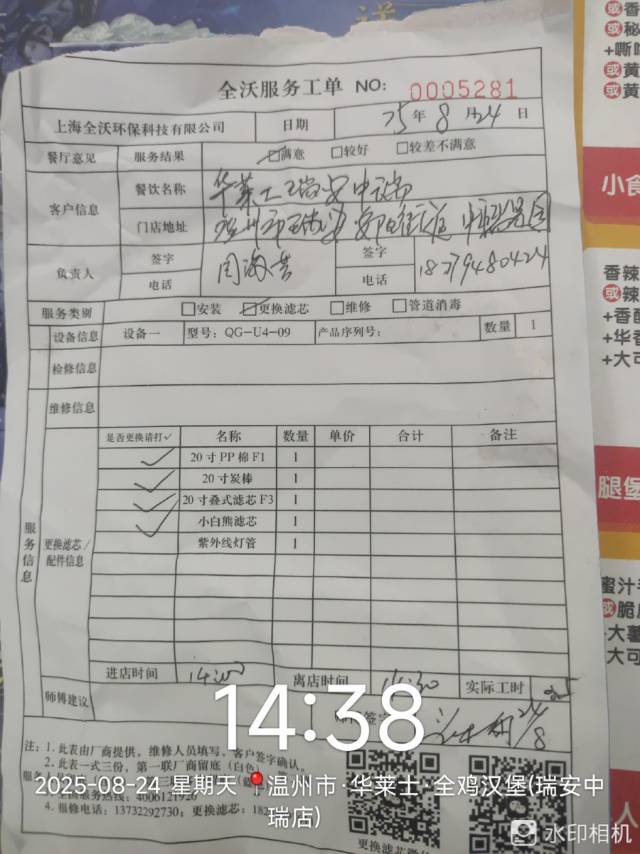 全沃服务工单 NO: 0005281
上海全沃环保科技有限公司 日期 25年8月24日
餐厅意见 服务结果 ☑满意 □较好 □较差不满意
客户信息 餐饮名称 华莱士瑞安中瑞店
门店地址
负责人 签字 签字
电话 电话 18279480424
服务类别 □安装 ☑更换滤芯 □维修 □管道消毒
设备信息 设备一 型号: QG-U4-09 产品序列号: 数量 1
检修信息
维修信息
服务信息 更换滤芯/配件信息 是否更换请打✓ 名称 数量 单价 合计 备注
✓ 20寸PP棉F1 1
✓ 20寸炭棒 1
✓ 20寸叠式滤芯F3 1
✓ 小白熊滤芯 1
紫外线灯管 1
进店时间 14:00 离店时间 14:30 实际工时
师傅建议 签字 24/8
注: 1.此表由厂商提供,维修人员填写,客户签字确认。
2.此表一式三份,第一联厂商留底(白色)
服务热线: 4006121926
4.报修电话: 13732292730; 更换滤芯: 182
更换滤芯
14:38
2025-08-24 星期天 📍温州市·华莱士·全鸡汉堡(瑞安中瑞店)
水印相机
送
或香
或秘
+嘶
或黄
或黄
小食
香辣
或辣
+香酥
+华香
+大可
腿堡
蜜汁
或脆
大薯
大可
人